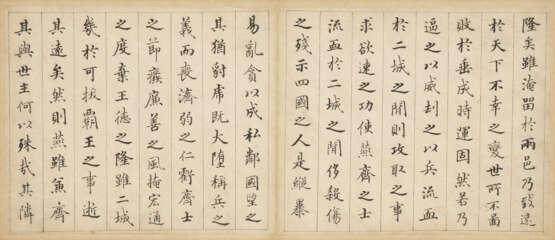 隆矣雖淹留於兩邑乃致遠
於天下不幸之變世所不啚
敗於垂成時運固然若乃
逼之以威刦之以兵流血
於二城之間則攻取之事
求欲速之功使燕齊之士
流血於二城之間侈殺傷
之殘示四國之人是縱暴
易亂貪以成私鄰國望之
其猶豺虎既大墮稱兵之
義而喪濟弱之仁虧齊士
之節癈廉善之風掩宏通
之度棄王德之隆雖二城
幾於可拔霸王之事逝
其遠矣然則燕雖兼齊
其與世主何以殊哉其隣